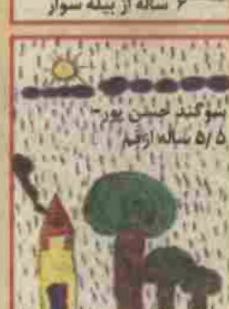 ۶ ساله از بیله سوار
سوگند حسن پور-
۵/۵ ساله از قم